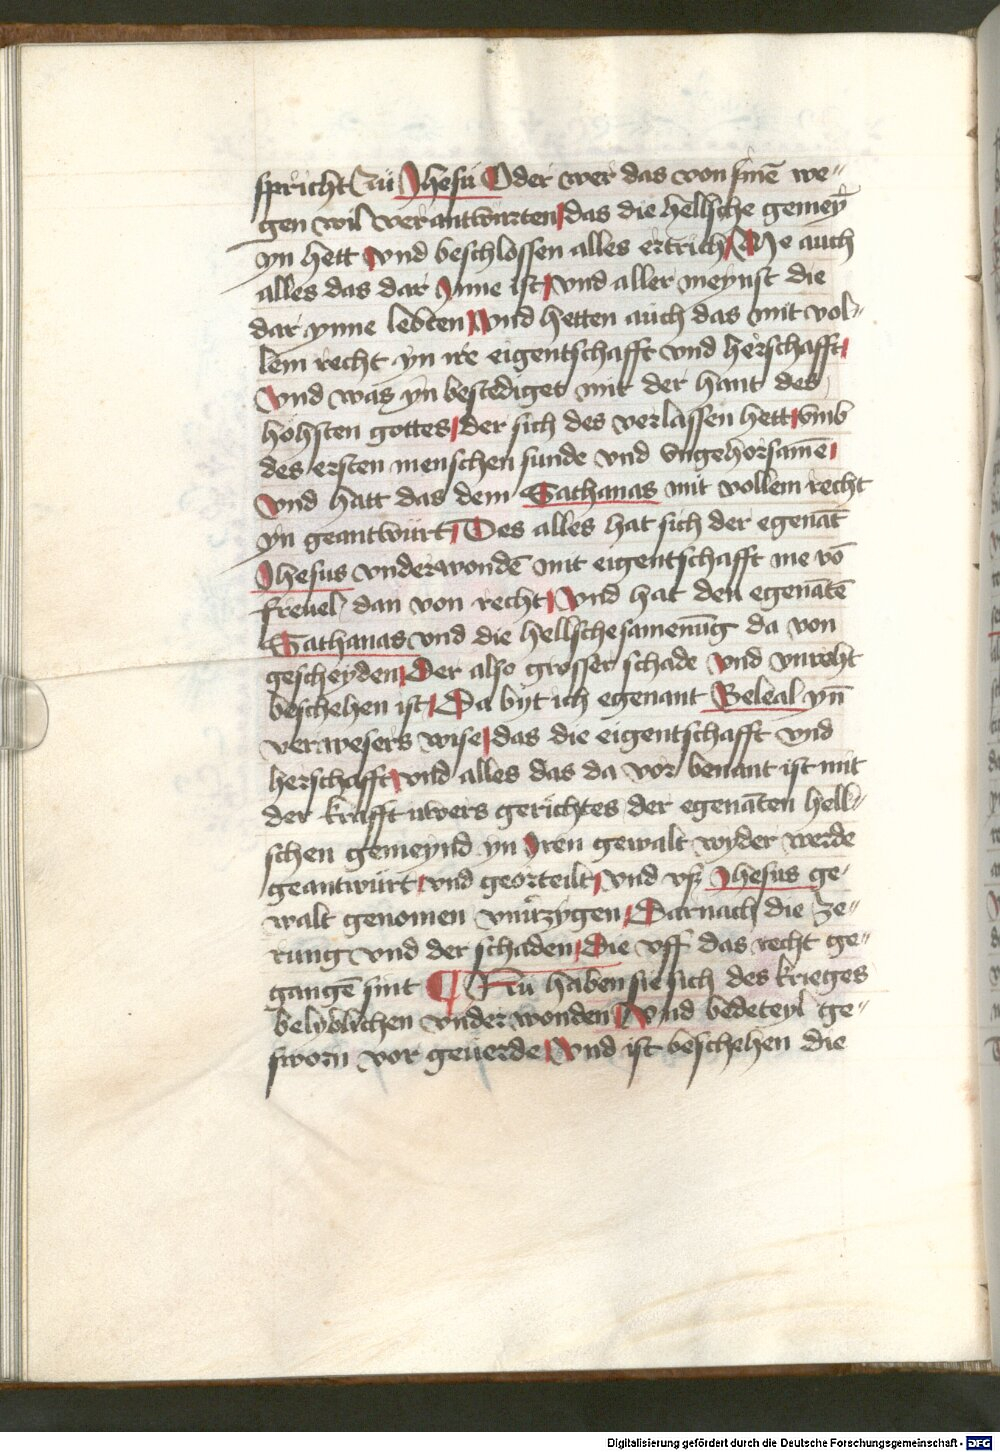 spricht Zu Jhesu Oder wer das von sinē we„
gen wil verantwurten das die hellsche gemey̅
yn hett vnd beschlossen alles ertrich Me auch
alles das dar Jnne ist vnd aller meynst die
dar ynne lebten Vnd hetten auch das mit vol„
lem recht yn ire eigentschafft vnd herschafft
Vnd was yn bestediget mit der hant des
hohsten gottes der sich des verlassen hett vmb
des ersten menschen sunde vnd vngehorsamē
vnd hatt das dem Sathanas mit vollem recht
yn geantwurt Des alles hat sich der egenāt
Jhesus vnderwondē mit eigentschafft me vō
freuel dan von recht Vnd hat den egenātē
Sathanas vnd die hellsche samenūg da von
gescheyden Der also grosser schade vnd vnreht
beschehen ist Da byt ich egenant Beleal yn̄
verwesers wise das die eigentschafft vnd
herschafft vnd alles das da vor benant ist mit
der krafft uwers gerichtes der egenāten hell„
schen gemeynd yn Jren gewalt wyder werde
geantwurt vnd georteilt vnd vß Jhesus ge„
walt genomen Darnach die ze„
rung vnd der schaden Die vff das recht ge„
gangē sint Nu haben sie sich des krieges
belyblichen vnderwonden Vnd bedeteyl ge„
sworn vor geuerde Vnd ist beschehen die
Digitalisierung gefördert durch die Deutsche Forschungsgemeinschaft - DFG